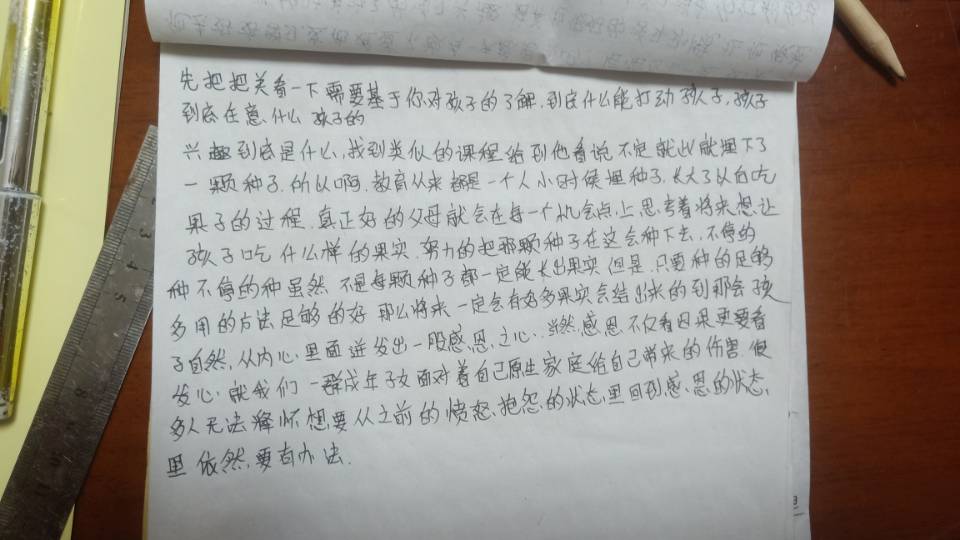 先把把关看一下需要基于你对孩子的了解.到底什么能打动孩子,孩子
到底在意.什么 孩子的
兴趣到底是什么,找到类似的课程给到他看说不定就此就埋下了
一颗种子.所以啊.教育从来都是一个人小时候埋种子.长大了以后吃
果子的过程.真正好的父母就会在每一个机会点上思考着将来想让
孩子吃什么样的果实.努力的把那颗种子在这会种下去.不停的
种不停的种虽然 不是每颗种子都一定能长出果实但是.只要种的足够
多用的方法足够的好那么将来一定会有好多果实会结出来的到那会孩
子自然,从内心里面迸发出一股感恩之心.当然.感恩不仅看因果更要看
发心.就我们一群成年子女面对着自己原生家庭给自己带来的伤害.很
多人无法释怀想要从之前的愤怒.抱怨的状态里回到感恩的状态
里依然.要有办法.